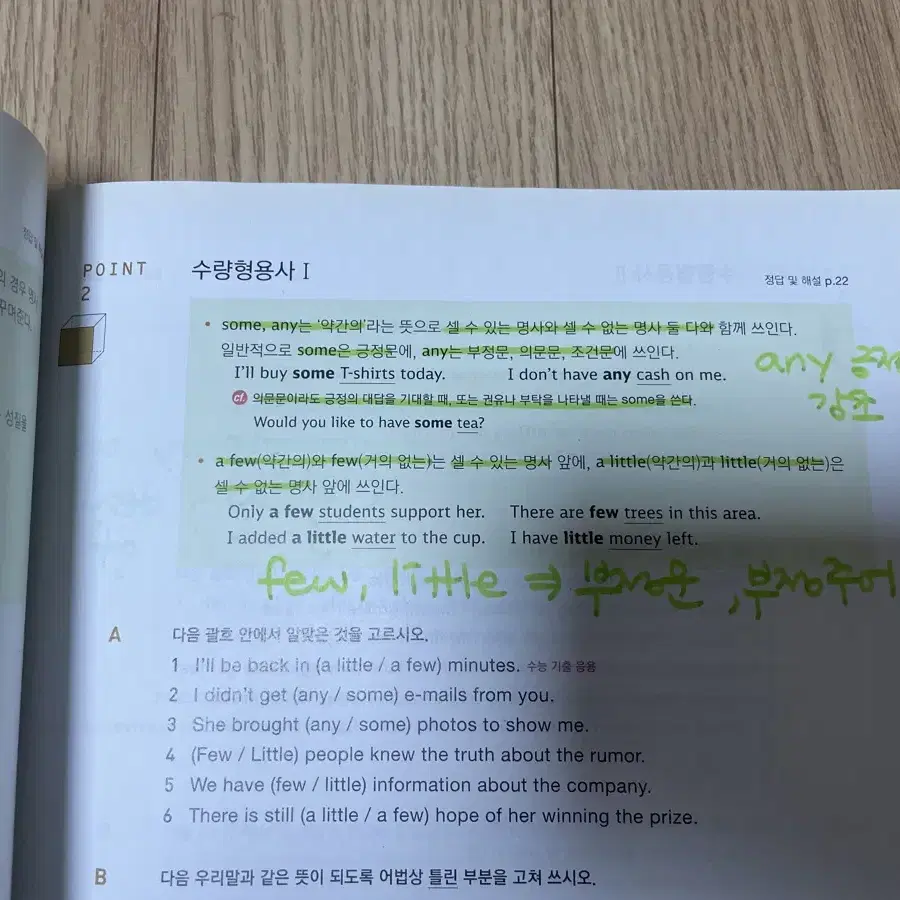 의 경우 명사
꾸며준다.
성질을
POINT
2
수량형용사 I
정답 및 해설 p.22
• some, any는 '약간의'라는 뜻으로 셀 수 있는 명사와 셀 수 없는 명사 둘 다와 함께 쓰인다.
일반적으로 some은 긍정문에, any는 부정문, 의문문, 조건문에 쓰인다.
I'll buy some T-shirts today. I don't have any cash on me.
any
강조
cf. 의문문이라도 긍정의 대답을 기대할 때, 또는 권유나 부탁을 나타낼 때는 some을 쓴다.
Would you like to have some tea?
• a few(약간의)와 few(거의 없는)는 셀 수 있는 명사 앞에, a little(약간의)과 little(거의 없는)은
셀 수 없는 명사 앞에 쓰인다.
Only a few students support her. There are few trees in this area.
I added a little water to the cup. I have little money left.
few, little ⇒ 부정문, 부정주어
A 다음 괄호 안에서 알맞은 것을 고르시오.
1 I'll be back in (a little / a few) minutes. 수능 기출 응용
2 I didn't get (any / some) e-mails from you.
3 She brought (any / some) photos to show me.
4 (Few / Little) people knew the truth about the rumor.
5 We have (few / little) information about the company.
6 There is still (a little / a few) hope of her winning the prize.
B 다음 우리말과 같은 뜻이 되도록 어법상 틀린 부분을 고쳐 쓰시오.